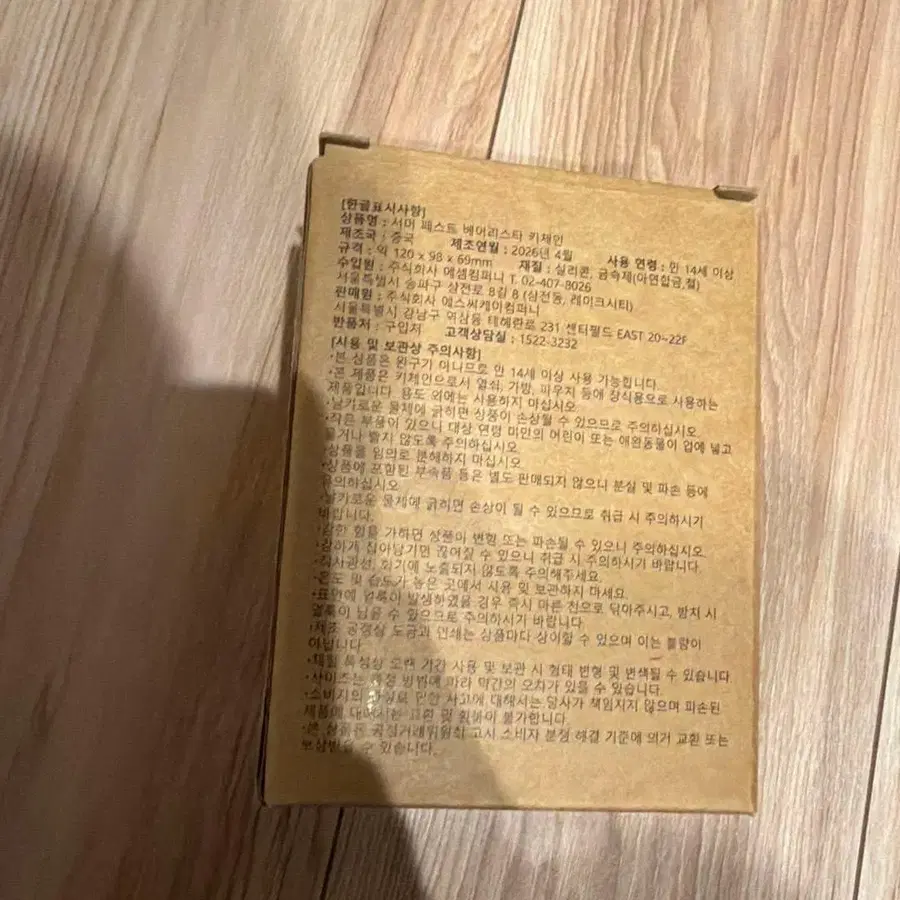 [한글표시사항]
상품명 : 서머 페스트 베어리스타 키체인
제조국 : 중국 제조연월 : 2026년 4월 사용 연령 : 만 14세 이상
규격 : 약 120 x 98 x 69mm 재질 : 실리콘, 금속제(아연합금,철)
수입원 : 주식회사 에셈컴퍼니 T. 02-407-8026
서울특별시 송파구 삼전로 8길 8 (삼전동, 레이크시티)
판매원 : 주식회사 에스씨케이컴퍼니
서울특별시 강남구 역삼동 테헤란로 231 센터필드 EAST 20~22F
반품처 : 구입처 고객상담실 : 1522-3232
[사용 및 보관상 주의사항]
•본 상품은 완구가 아니므로 만 14세 이상 사용 가능합니다.
•본 제품은 키체인으로서 열쇠, 가방, 파우치 등에 장식용으로 사용하는
제품입니다. 용도 외에는 사용하지 마십시오.
•날카로운 물체에 긁히면 상품이 손상될 수 있으므로 주의하십시오.
•작은 부품이 있으니 대상 연령 미만의 어린이 또는 애완동물이 입에 넣고
물거나 빨지 않도록 주의하십시오.
•상품을 임의로 분해하지 마십시오.
•상품에 포함된 부속품 등은 별도 판매되지 않으니 분실 및 파손 등에
유의하십시오.
•날카로운 물체에 긁히면 손상이 될 수 있으므로 취급 시 주의하시기
바랍니다.
•강한 힘을 가하면 상품이 변형 또는 파손될 수 있으니 주의하십시오.
•강하게 잡아당기면 끊어질 수 있으니 취급 시 주의하시기 바랍니다.
•직사광선, 화기에 노출되지 않도록 주의해주세요.
•온도 및 습도가 높은 곳에서 사용 및 보관하지 마세요.
•표면에 얼룩이 발생하였을 경우 즉시 마른 천으로 닦아주시고, 방치 시
얼룩이 남을 수 있으므로 주의하시기 바랍니다.
•제조 공정상 도금과 인쇄는 상품마다 상이할 수 있으며 이는 불량이
아닙니다.
•재질 특성상 오랜 기간 사용 및 보관 시 형태 변형 및 변색될 수 있습니다.
•사이즈는 측정 방법에 따라 약간의 오차가 있을 수 있습니다.
•소비자의 과실로 인한 사고에 대해서는 당사가 책임지지 않으며 파손된
제품에 대해서는 교환 및 환불이 불가합니다.
•본 상품은 공정거래위원회 고시 소비자 분쟁 해결 기준에 의거 교환 또는
보상받을 수 있습니다.